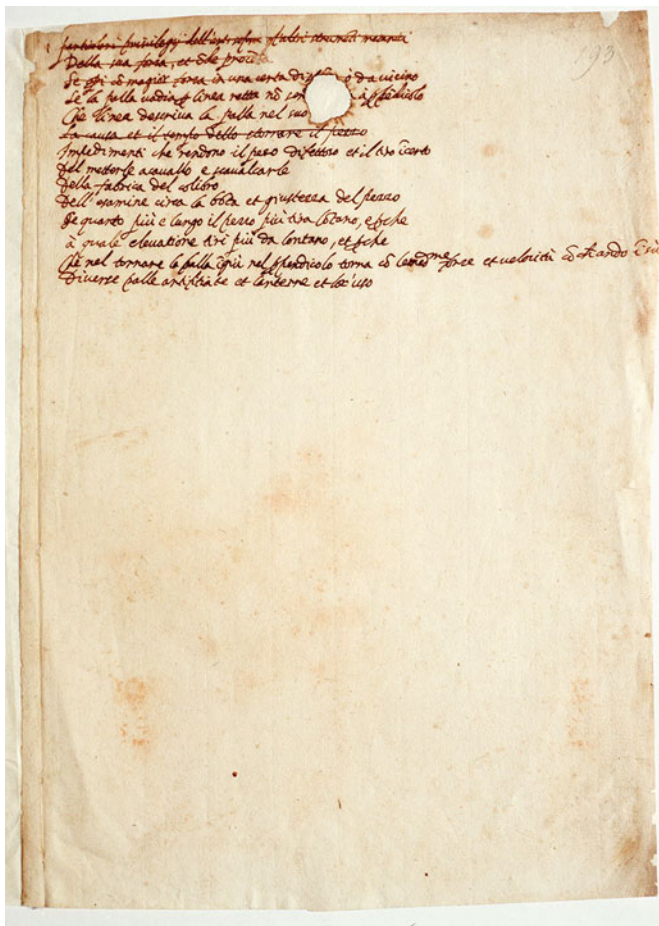 193
particolari privilegij dell'artigl.a sopra altri strumenti mecanici
Della sua forza, et onde proceda
Se opi cō maggior forza in una certa di ō da vicino
Se la palla vadia p linea retta nō à ppēdicolo
Che linea descriva la palla nel suo
La causa et il tempo dello stornare il pezzo
Impedimenti che rendono il pezo difettoso et il tiro īcerto
Del metterle a cavallo e scavalcarle
Della fabrica del colibro
Dell'esamine circa la bōtà et giustezza del pezzo
Se quanto più è lungo il pezzo più tira lōtano, e pche
à quale elevatione tiri più da lontano, et pche
Che nel tornare la palla ī giù nel ppendicolo torna cō le med.me forze et velocità cō che andò ī sù
Diverse palle artifitiate et lanterne et lor'uso